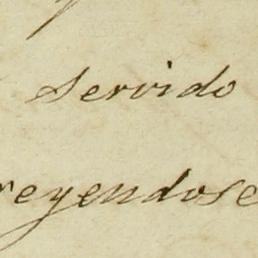 servido
reyendose